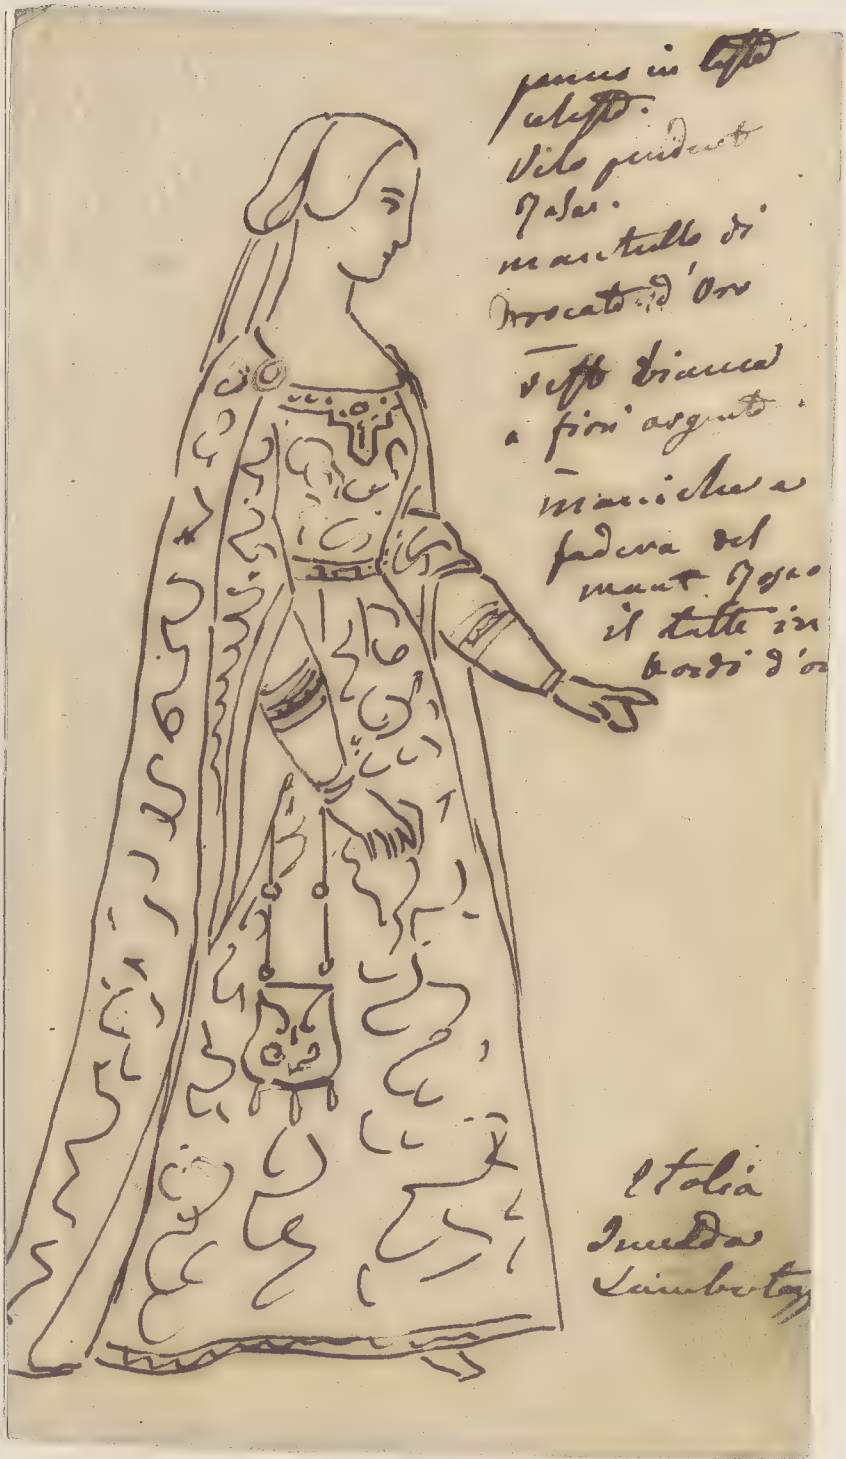 in testa
celeste.
Velo pendente
Rosa.
mantello di
Broccato d'Oro
veste bianca
a fiori argento.
maniche e
fodera del
mant. Rosa
il tutto in
bordi d'or
Italia
Imelda
Lambertazzi